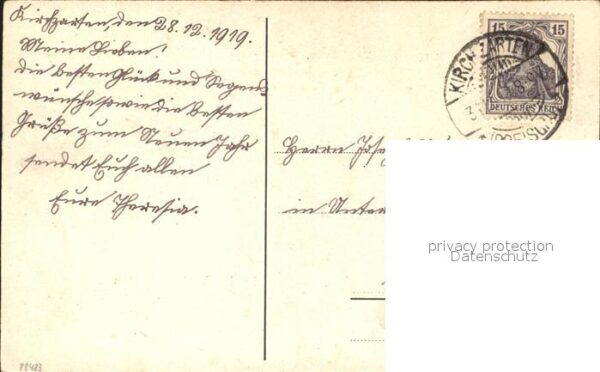 Kirchzarten, den 28.12.1919.
Meine Lieben!
Die besten Glück und Segens
wünsche sowie die besten
Grüße zum Neuen Jahr
sendet Euch allen
Eure Theresia.
15 15
DEUTSCHES REICH
KIRCHZARTEN
Herrn Josef
in Unter
privacy protection
Datenschutz
88483